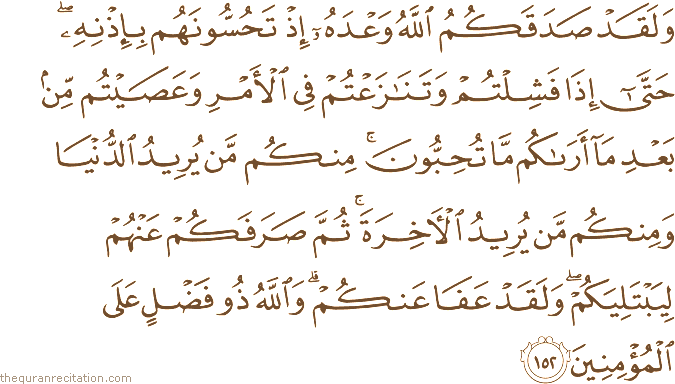 وَلَقَدْ صَدَقَكُمُ ٱللَّهُ وَعْدَهُۥٓ إِذْ تَحُسُّونَهُم بِإِذْنِهِۦ ۖ
حَتَّىٰٓ إِذَا فَشِلْتُمْ وَتَنَـٰزَعْتُمْ فِى ٱلْأَمْرِ وَعَصَيْتُم مِّنۢ
بَعْدِ مَآ أَرَىٰكُم مَّا تُحِبُّونَ ۚ مِنكُم مَّن يُرِيدُ ٱلدُّنْيَا
وَمِنكُم مَّن يُرِيدُ ٱلْـَٔاخِرَةَ ۚ ثُمَّ صَرَفَكُمْ عَنْهُمْ
لِيَبْتَلِيَكُمْ ۖ وَلَقَدْ عَفَا عَنكُمْ ۗ وَٱللَّهُ ذُو فَضْلٍ عَلَى
ٱلْمُؤْمِنِينَ ١٥٢
thequranrecitation.com